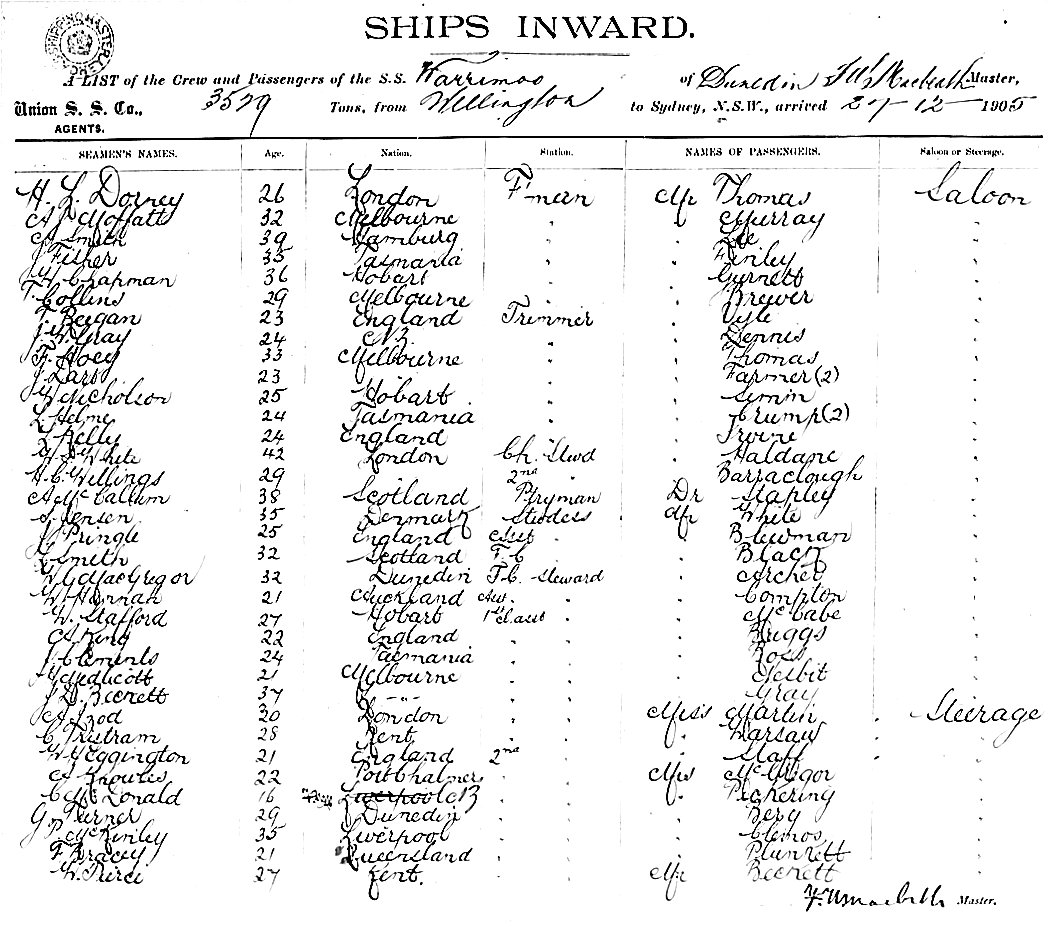 SHIPS INWARD.
A LIST of the Crew and Passengers of the S.S. Warrimoo of Dunedin Master,
Union S. S. Co., 3529 Tons, from Wellington to Sydney, N.S.W., arrived 27-12-1905
AGENTS.
SEAMEN'S NAMES. Age. Nation. Station. NAMES OF PASSENGERS. Saloon or Steerage.
H. L. Dorney 26 London F'man Mr Thomas Saloon
A J Moffatt 32 Melbourne " " Murray "
A Smith 39 Hamburg " " Lee "
J Fisher 35 Tasmania " " Finley "
Chapman 36 Hobart " " Gurnett "
T. Collins 29 Melbourne " " Brewer "
T. Beegan 23 England Trimmer " Vyle "
J. W. Gray 24 N.Z. " " Dennis "
F. Hoey 33 Melbourne " " Thomas "
J 23 " " " Farmer (2) "
W Nicholson 25 Hobart " " Simin "
L. Helme 24 Tasmania " " Crump (2) "
L Kelly 24 England " " Irvine "
White 42 London Ch. Stwd " Haldane "
H. C. Wellings 29 2nd " Barraclough "
A McCallum 38 Scotland P'tryman Dr Stapley "
S. Jensen 35 Denmark Stwdess Mr White "
J Pringle 25 England Asst " Blewman "
L Smith 32 Scotland F. C " Black "
W G MacGregor 32 Dunedin F. C. Steward " Archer "
W. Hannan 21 Auckland Ass. " " Compton "
W. Stafford 27 Hobart 1st Cl asst " McCabe "
A King 22 England " " " Briggs "
J Clements 24 Tasmania " " " Ross "
Medlicott 21 Melbourne " " " Nesbit "
J. D. Beckett 37 " " " " Gray "
A Izod 20 London " " Miss Martin Steerage
C Tristram 28 Kent " " " Warsaw "
W Y Eggington 21 England 2nd " " Staff "
A Knowles 22 Port Chalmers " " Mrs McGregor "
C McDonald 16 Liverpool NZ " " " Pickering "
G. Turner 29 Dunedin " " " Berg "
P. McKinley 35 Liverpool " " " Clemos "
F Bracey 21 Queensland " " " Plunkett "
W. Peirce 27 Kent. " " Mr Beckett "
Master.